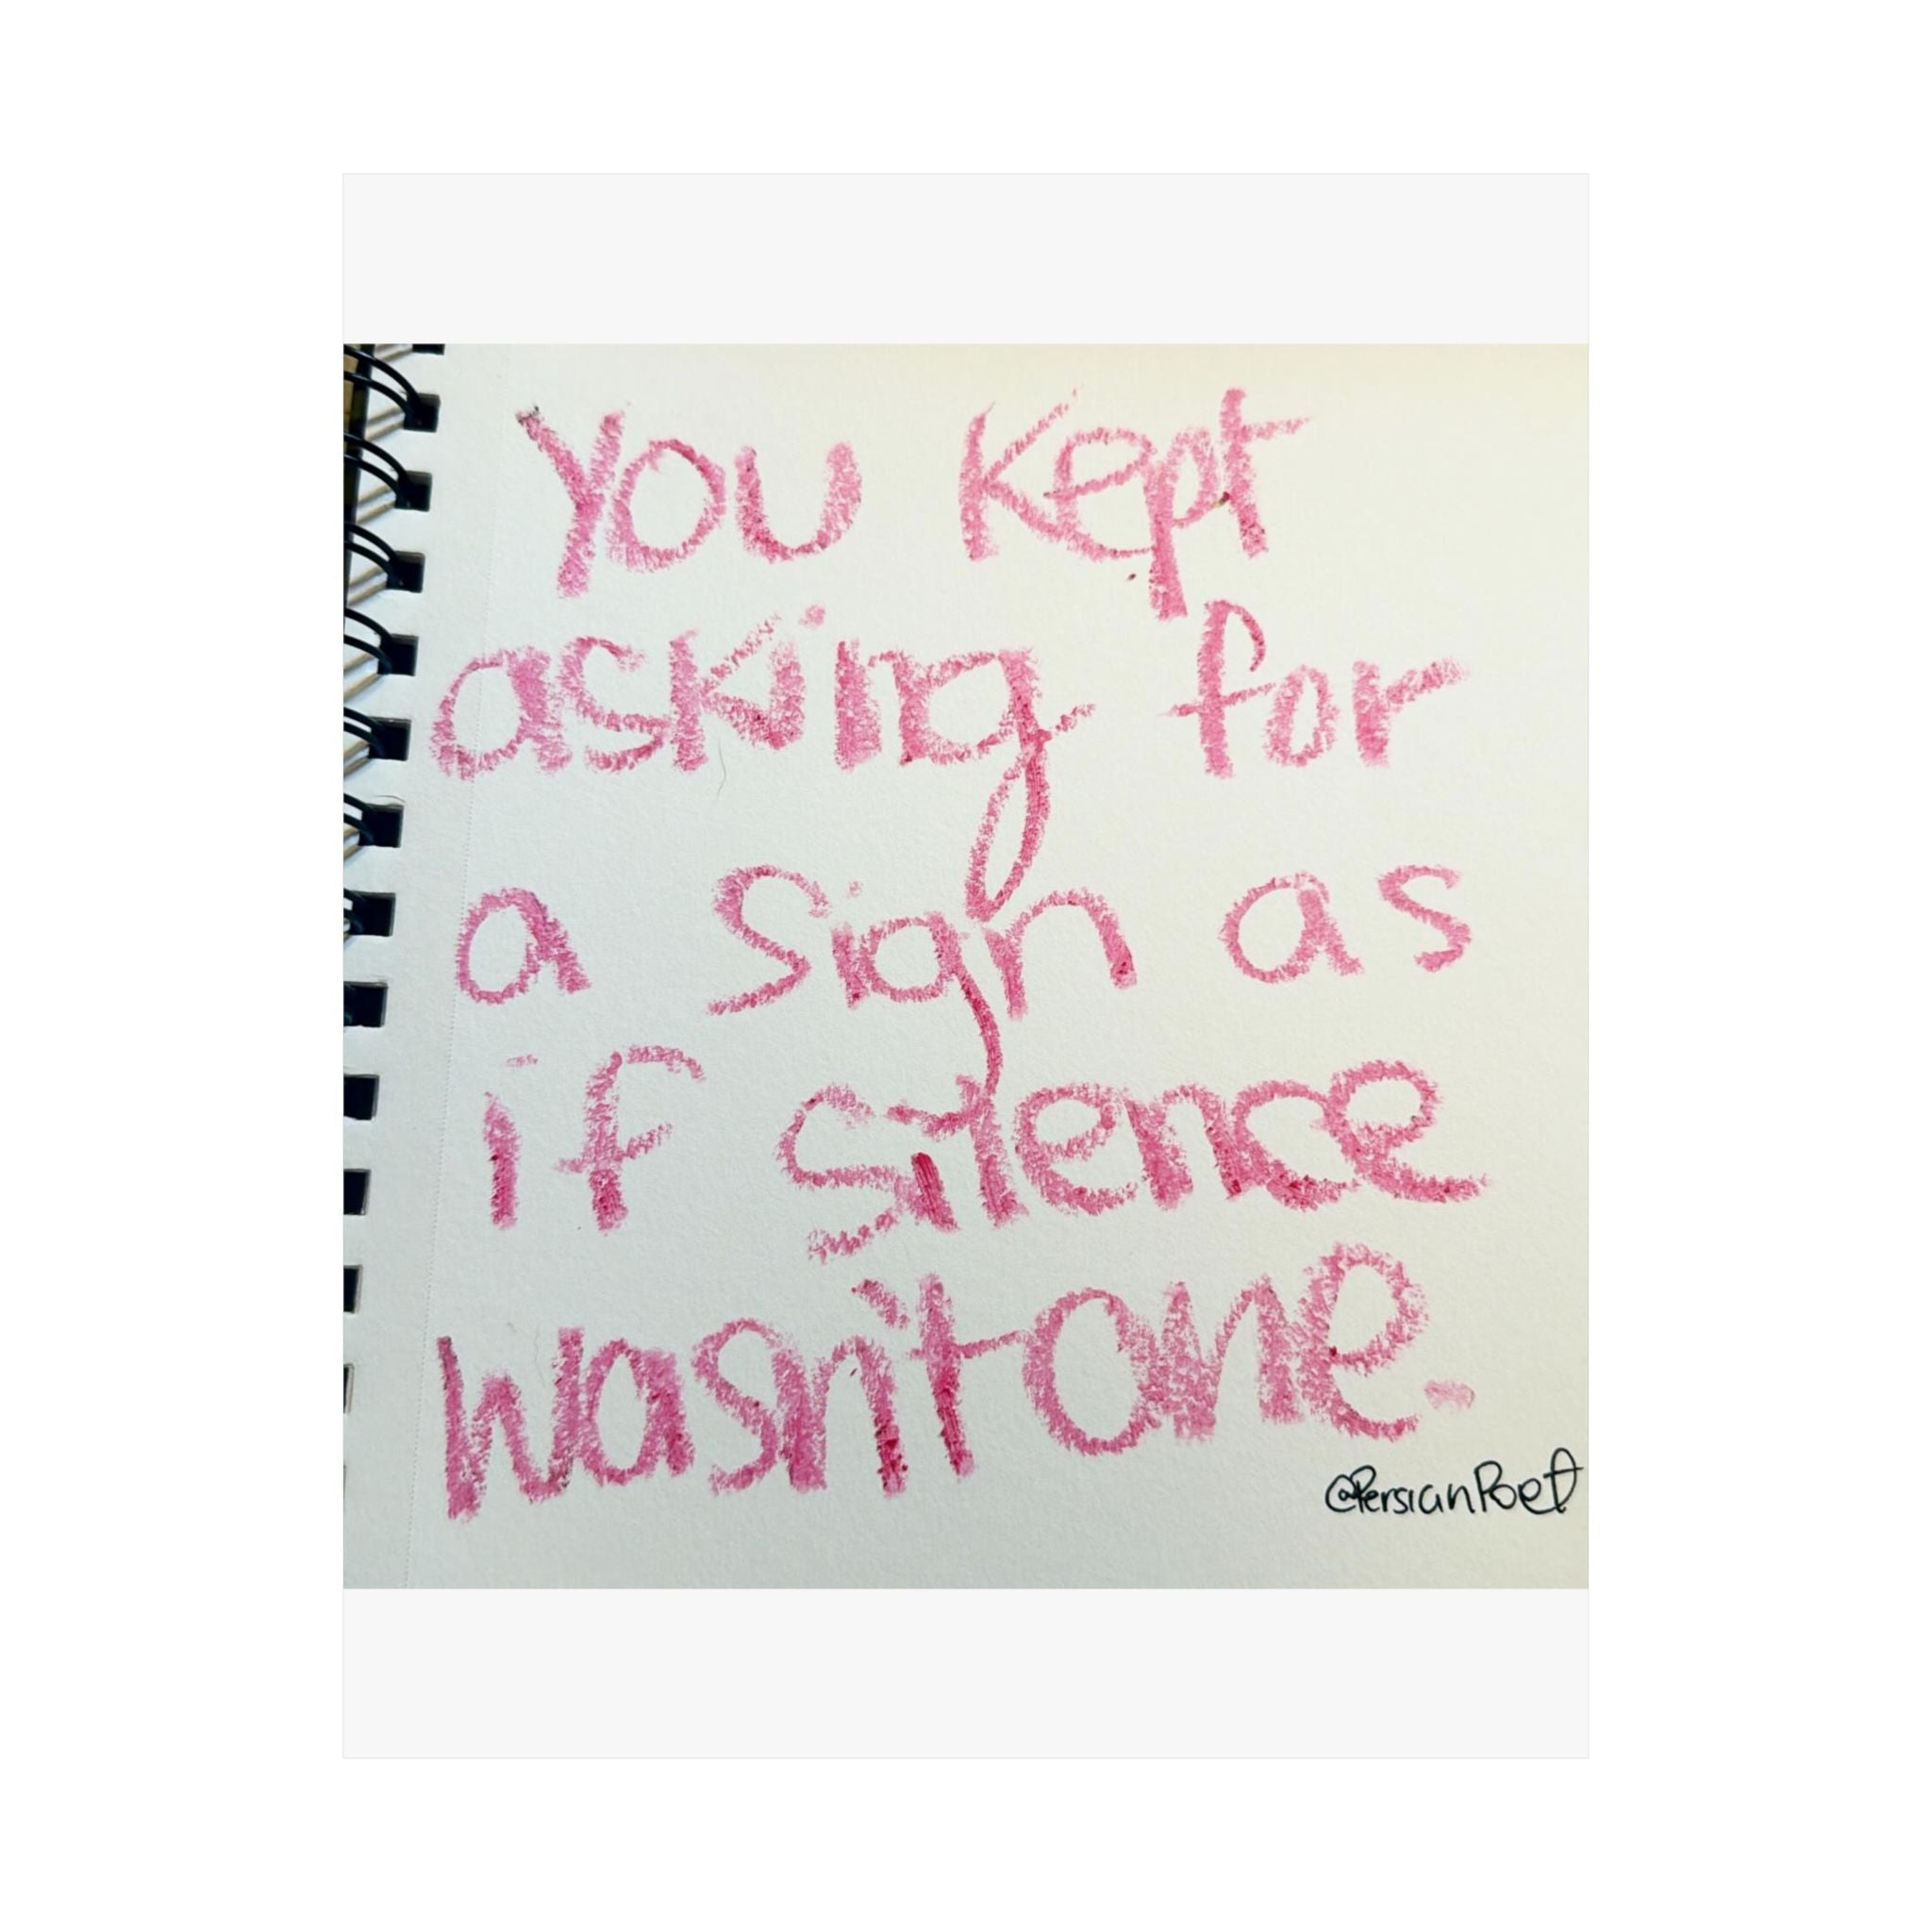 You Kept
asking for
a Sign as
if silence
wasn't one.
@PersianPoet